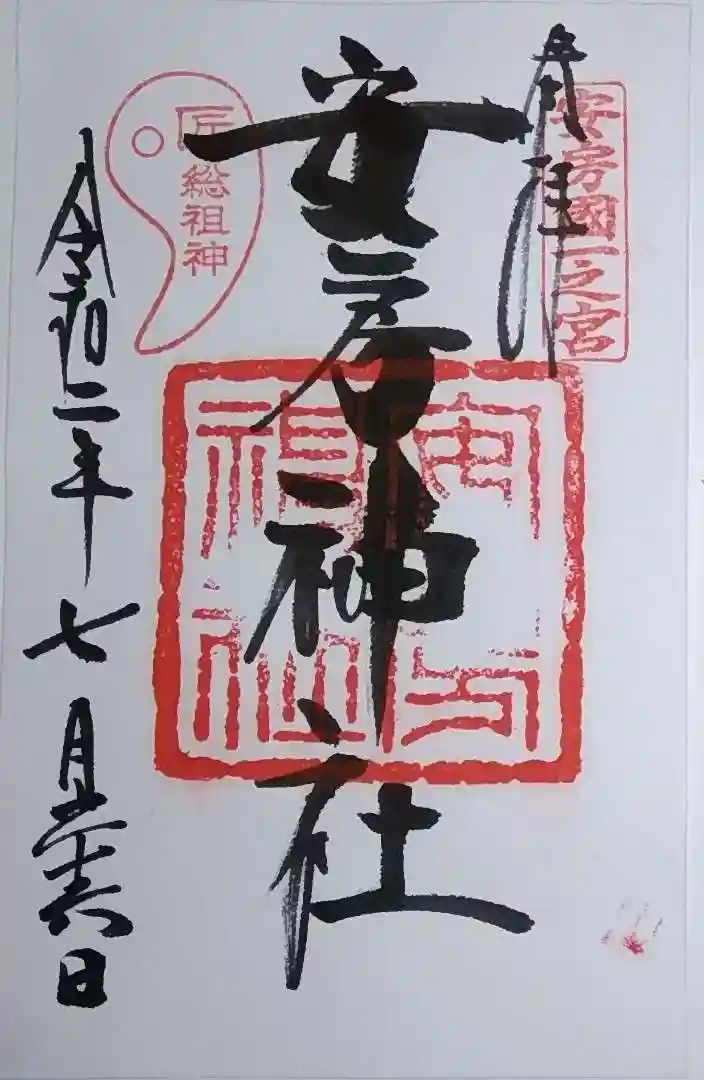 奉拝
安房國一之宮
安房神社
安房神社
匠総祖神
令和二年七月日